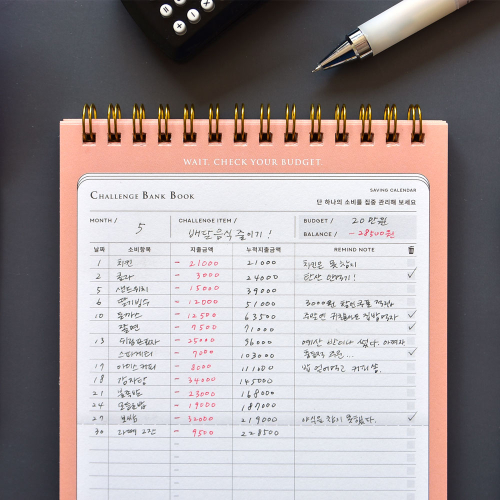 WAIT, CHECK YOUR BUDGET.
CHALLENGE BANK BOOK
SAVING CALENDAR
단 하나의 소비를 집중 관리해 보세요
MONTH / 5 CHALLENGE ITEM / 배달음식 줄이기! BUDGET / 20만원
BALANCE / -28500원
날짜 소비항목 지출금액 누적지출금액 REMIND NOTE
1 치킨 - 21000 21000 치킨은 못 참지
2 - 3000 24000
5 샌드위치 - 15000 39000
6 딸기빙수 - 12000 51000 3000원
10 돈까스 - 12500 63500
쫄면 - 7500 71000
13 - 25000 96000
스파게티 - 7000 103000
17 아이스커피 - 8000 111000
18 감자탕 - 34000 145000
21 - 23000 168000
24 - 19000 187000
27 보쌈 - 32000 219000 야식은 참지 못했다.
30 라떼 2잔 - 9500 228500